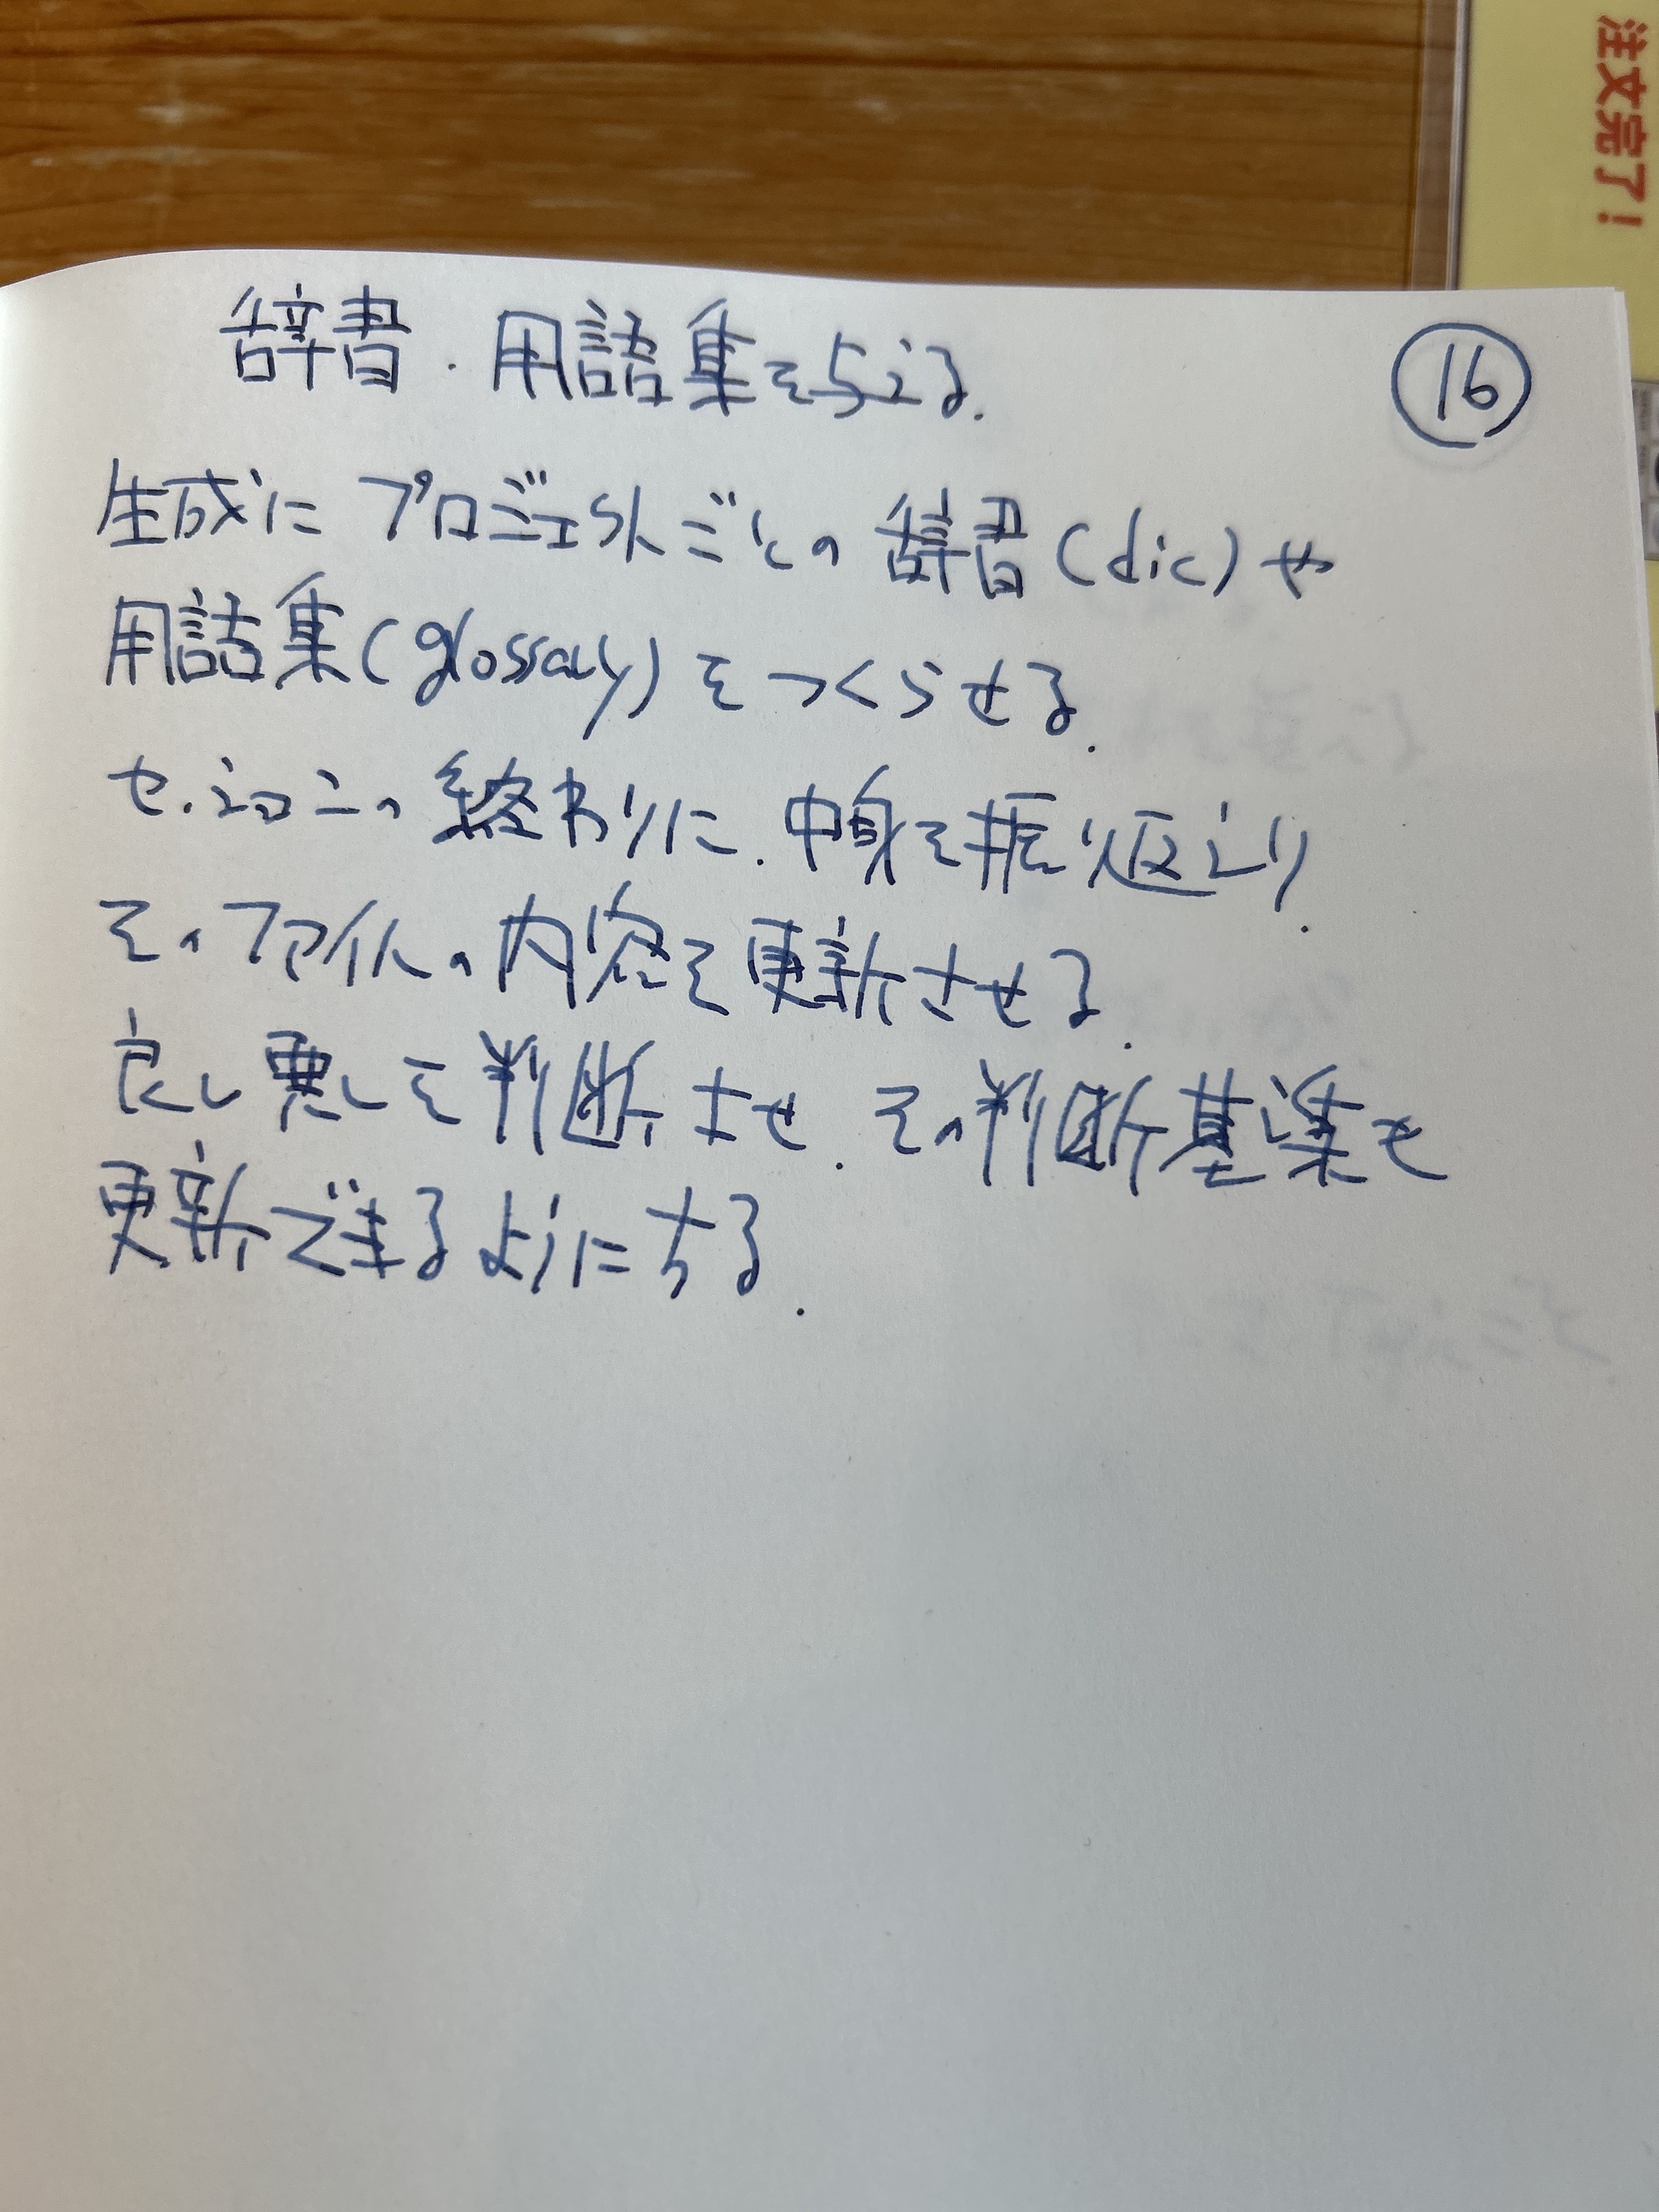 注文完了！
辞書・用語集を与える。
⑯
生成にプロジェクトごとの辞書(dic)や
用語集(glossary)をつくらせる。
セッションの終わりに、中身を振り返り、
そのファイルの内容を更新させる。
良し悪しを判断させ、その判断基準も
更新できるようにする。